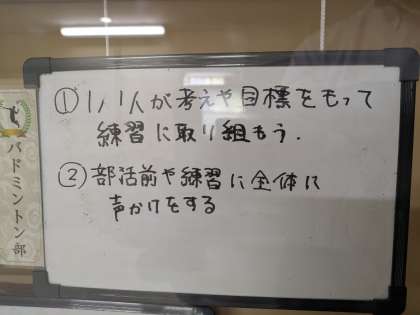 バドミントン部
① 1人1人が考えや目標をもって
練習に取り組もう.
② 部活前や練習に全体に
声かけをする